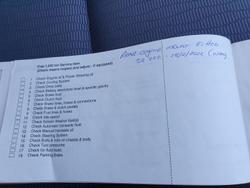 Every 1,000 km Service Item
(Check means inspect and adjust, if required)
1 Check Engine oil & Power Steering oil
2 Check Cooling System
3 Check Drive belts
4 Check Battery electrolyte level & specific gravity
5 Check Brake fluid
6 Check Clutch fluid
7 Check Brake lines, hoses & connections
8 Check Brake & clutch pedals
9 Check Fuel lines & hoses
10 Check Idle speed
11 Check
12 Check Automatic transaxle fluid
13 Check Manual transaxle oil
14 Check Steering System
15 Check Bolts & nuts on chassis & body
16 Check Tyre pressure
17 Check for fluid leaks
18 Check Parking Brake
Rear engine mount fitted